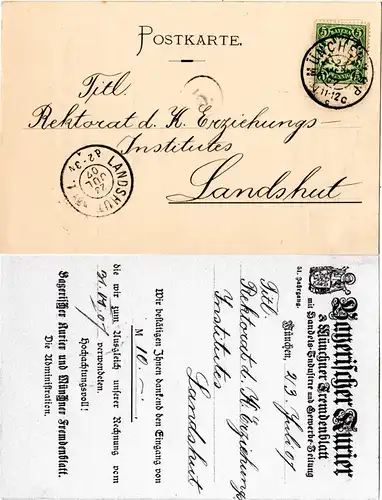 POSTKARTE.
5 BAYERN 5
MÜNCHEN
V. 11-12 C
Titl
Rektorat d. K. Erziehungs-
Institutes
Landshut
LANDSHUT
22
JUL
07
Bayerischer Kurier
& Münchner Fremdenblatt
mit Handels-Industrie und Gewerbe-Zeitung
51. Jahrgang.
München, 213 Juli 07
Titl
Rektorat d. K. Erziehungs
Institutes
Landshut
Wir bestätigen Ihnen dankend den Eingang von
M 10.-
die wir zum Ausgleich unserer Rechnung vom
verwendeten.
Hochachtungsvoll!
Bayerischer Kurier und Münchner Fremdenblatt.
Die Administration.